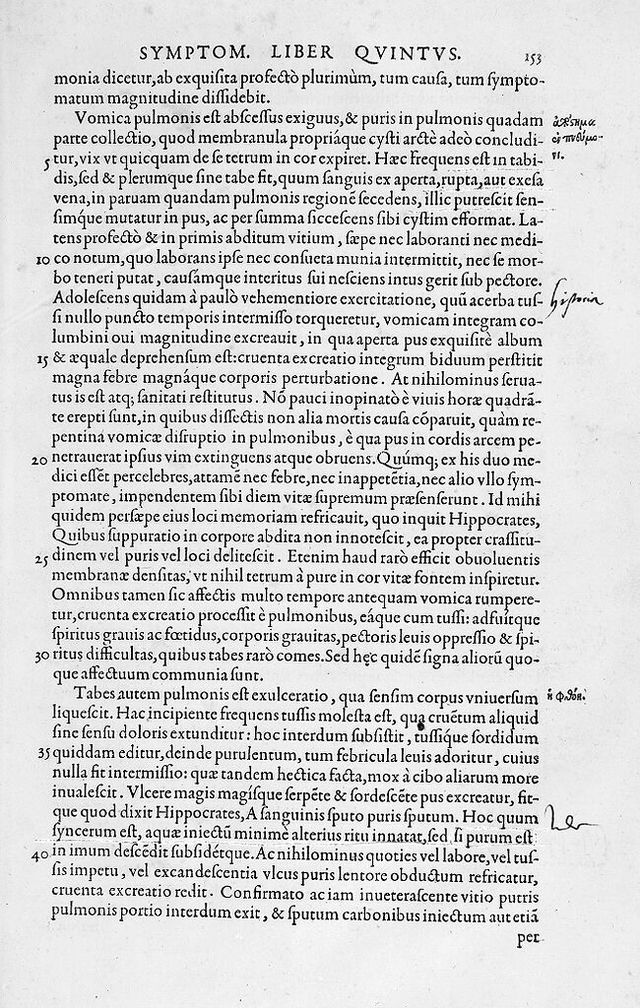 SYMPTOM. LIBER QVINTVS. 153
monia dicetur, ab exquiſita profectò plurimùm, tum cauſa, tum ſympto-
matum magnitudine diſſidebit.
Vomica pulmonis eſt abſceſſus exiguus, & puris in pulmonis quadam
parte collectio, quod membranula propriáque cyſti arctè adeò concludi-
5 tur, vix vt quicquam de ſe tetrum in cor expiret. Hæc frequens eſt in tabi-
dis, ſed & plerumque ſine tabe fit, quum ſanguis ex aperta, rupta, aut exeſa
vena, in paruam quandam pulmonis regionē ſecedens, illic putreſcit ſen-
ſimque mutatur in pus, ac per ſumma ſicceſcens ſibi cyſtim efformat. La-
tens profectò & in primis abditum vitium, ſæpe nec laboranti nec medi-
10 co notum, quo laborans ipſe nec conſueta munia intermittit, nec ſe mor-
bo teneri putat, cauſámque interitus ſui neſciens intus gerit ſub pectore.
Adoleſcens quidam à paulò vehementiore exercitatione, quū acerba tuſ-
ſi nullo puncto temporis intermiſſo torqueretur, vomicam integram co-
lumbini oui magnitudine excreauit, in qua aperta pus exquiſitè album
15 & æquale deprehenſum eſt: cruenta excreatio integrum biduum perſtitit
magna febre magnáque corporis perturbatione. At nihilominus ſerua-
tus is eſt atq; ſanitati reſtitutus. Nō pauci inopinatò è viuis horæ quadrā-
te erepti ſunt, in quibus diſſectis non alia mortis cauſa cōparuit, quàm re-
pentina vomicæ diſruptio in pulmonibus, è qua pus in cordis arcem pe-
20 netrauerat ipſius vim extinguens atque obruens. Quúmq; ex his duo me-
dici eſſēt percelebres, attamē nec febre, nec inappetētia, nec alio vllo ſym-
ptomate, impendentem ſibi diem vitæ ſupremum præſenſerunt. Id mihi
quidem perſæpe eius loci memoriam refricauit, quo inquit Hippocrates,
Quibus ſuppuratio in corpore abdita non innoteſcit, ea propter craſſitu-
25 dinem vel puris vel loci deliteſcit. Etenim haud rarò efficit obuoluentis
membranæ denſitas, vt nihil tetrum à pure in cor vitæ fontem inſpiretur.
Omnibus tamen ſic affectis multo tempore antequam vomica rumpere-
tur, cruenta excreatio proceſſit è pulmonibus, eáque cum tuſſi: adfuítque
ſpiritus grauis ac fœtidus, corporis grauitas, pectoris leuis oppreſſio & ſpi-
30 ritus difficultas, quibus tabes rarò comes. Sed hęc quidē ſigna aliorū quo-
que affectuum communia ſunt.
Tabes autem pulmonis eſt exulceratio, qua ſenſim corpus vniuerſum
liqueſcit. Hac incipiente frequens tuſſis moleſta eſt, qua cruētum aliquid
ſine ſenſu doloris extunditur: hoc interdum ſubſiſtit, tuſſique ſordidum
35 quiddam editur, deinde purulentum, tum febricula leuis adoritur, cuius
nulla fit intermiſſio: quæ tandem hectica facta, mox à cibo aliarum more
inualeſcit. Vlcere magis magíſque ſerpēte & ſordeſcēte pus excreatur, fit-
que quod dixit Hippocrates, A ſanguinis ſputo puris ſputum. Hoc quum
ſyncerum eſt, aquæ iniectū minimè alterius ritu innatat, ſed ſi purum eſt
40 in imum deſcēdit ſubſidétque. Ac nihilominus quoties vel labore, vel tuſ-
ſis impetu, vel excandeſcentia vlcus puris lentore obductum refricatur,
cruenta excreatio redit. Confirmato ac iam inueteraſcente vitio putris
pulmonis portio interdum exit, & ſputum carbonibus iniectum aut etiā
per
ἡ φθόη.
Hiſtoria